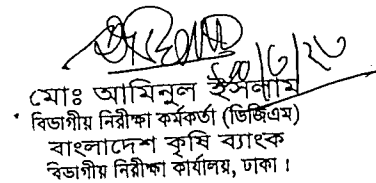 মোঃ আমিনুল ইসলাম
বিভাগীয় নিরীক্ষা কর্মকর্তা (ডিজিএম)
বাংলাদেশ কৃষি ব্যাংক
বিভাগীয় নিরীক্ষা কার্যালয়, ঢাকা।